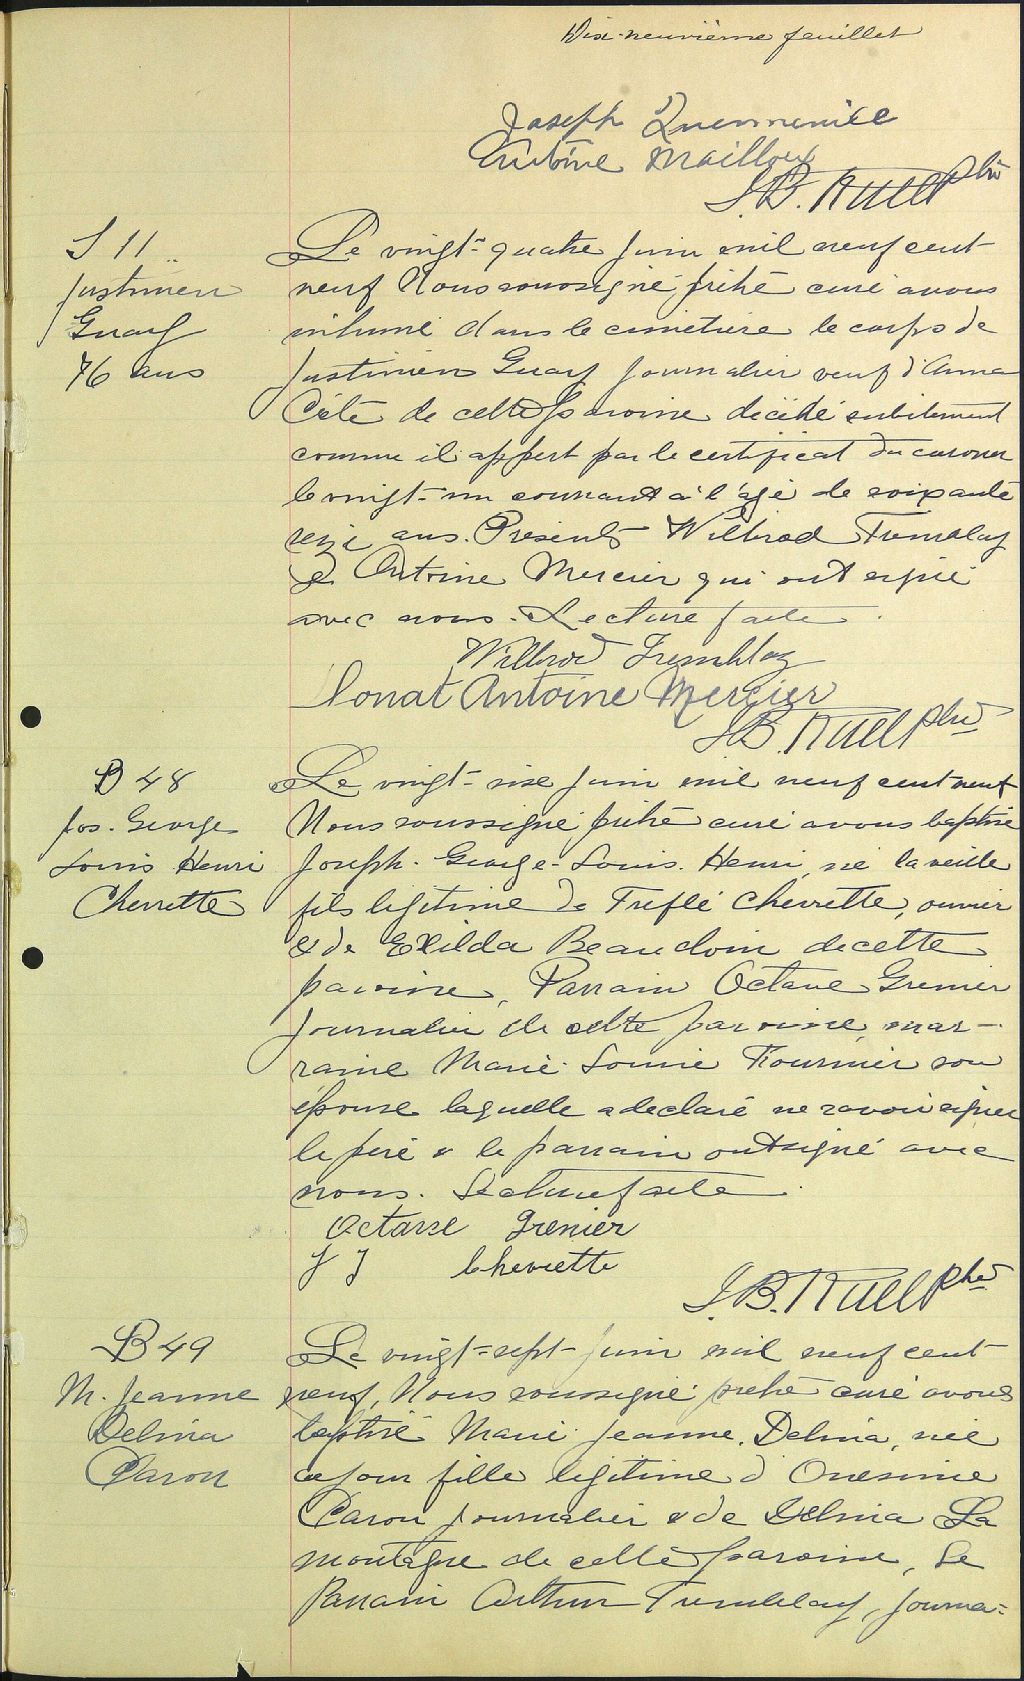 Dix-neuvième feuillet
Joseph
Antoine Mailloux
J.B. Ruel ptre
S 11
Justinien
Guay
76 ans
Le vingt-quatre juin mil neuf cent
neuf Nous soussigné prêtre curé avons
inhumé dans le cimetière le corps de
Justinien Guay journalier veuf d'Anna
Côté de cette paroisse décédé subitement
comme il appert par le certificat du coroner
le vingt-un courant à l'âge de soixante
seize ans. Présents Wilbrod Tremblay
& Antoine Mercier qui ont signé
avec nous. Lecture faite.
Wilbrod Tremblay
Donat Antoine Mercier
J.B. Ruel ptre
B 48
Jos. George
Louis Henri
Chevrette
Le vingt-six juin mil neuf cent neuf
Nous soussigné prêtre curé avons baptisé
Joseph-George-Louis-Henri, né la veille
fils légitime de Trefflé Chevrette, ouvrier
& de Exilda Beaudoin de cette
paroisse, Parrain Octave Grenier
journalier de cette paroisse, mar-
raine Marie-Louise Fournier son
épouse laquelle a déclaré ne savoir signer
le père & le parrain ont signé avec
nous. Lecture faite.
Octave Grenier
J J Chevrette
J.B. Ruel ptre
B 49
M. Jeanne
Delina
Caron
Le vingt-sept juin mil neuf cent
neuf, Nous soussigné prêtre curé avons
baptisé Marie Jeanne, Delina, née
ce jour fille légitime d'Onesime
Caron journalier & de Delina La
montagne de cette paroisse, Le
Parrain Arthur Tremblay, journa-